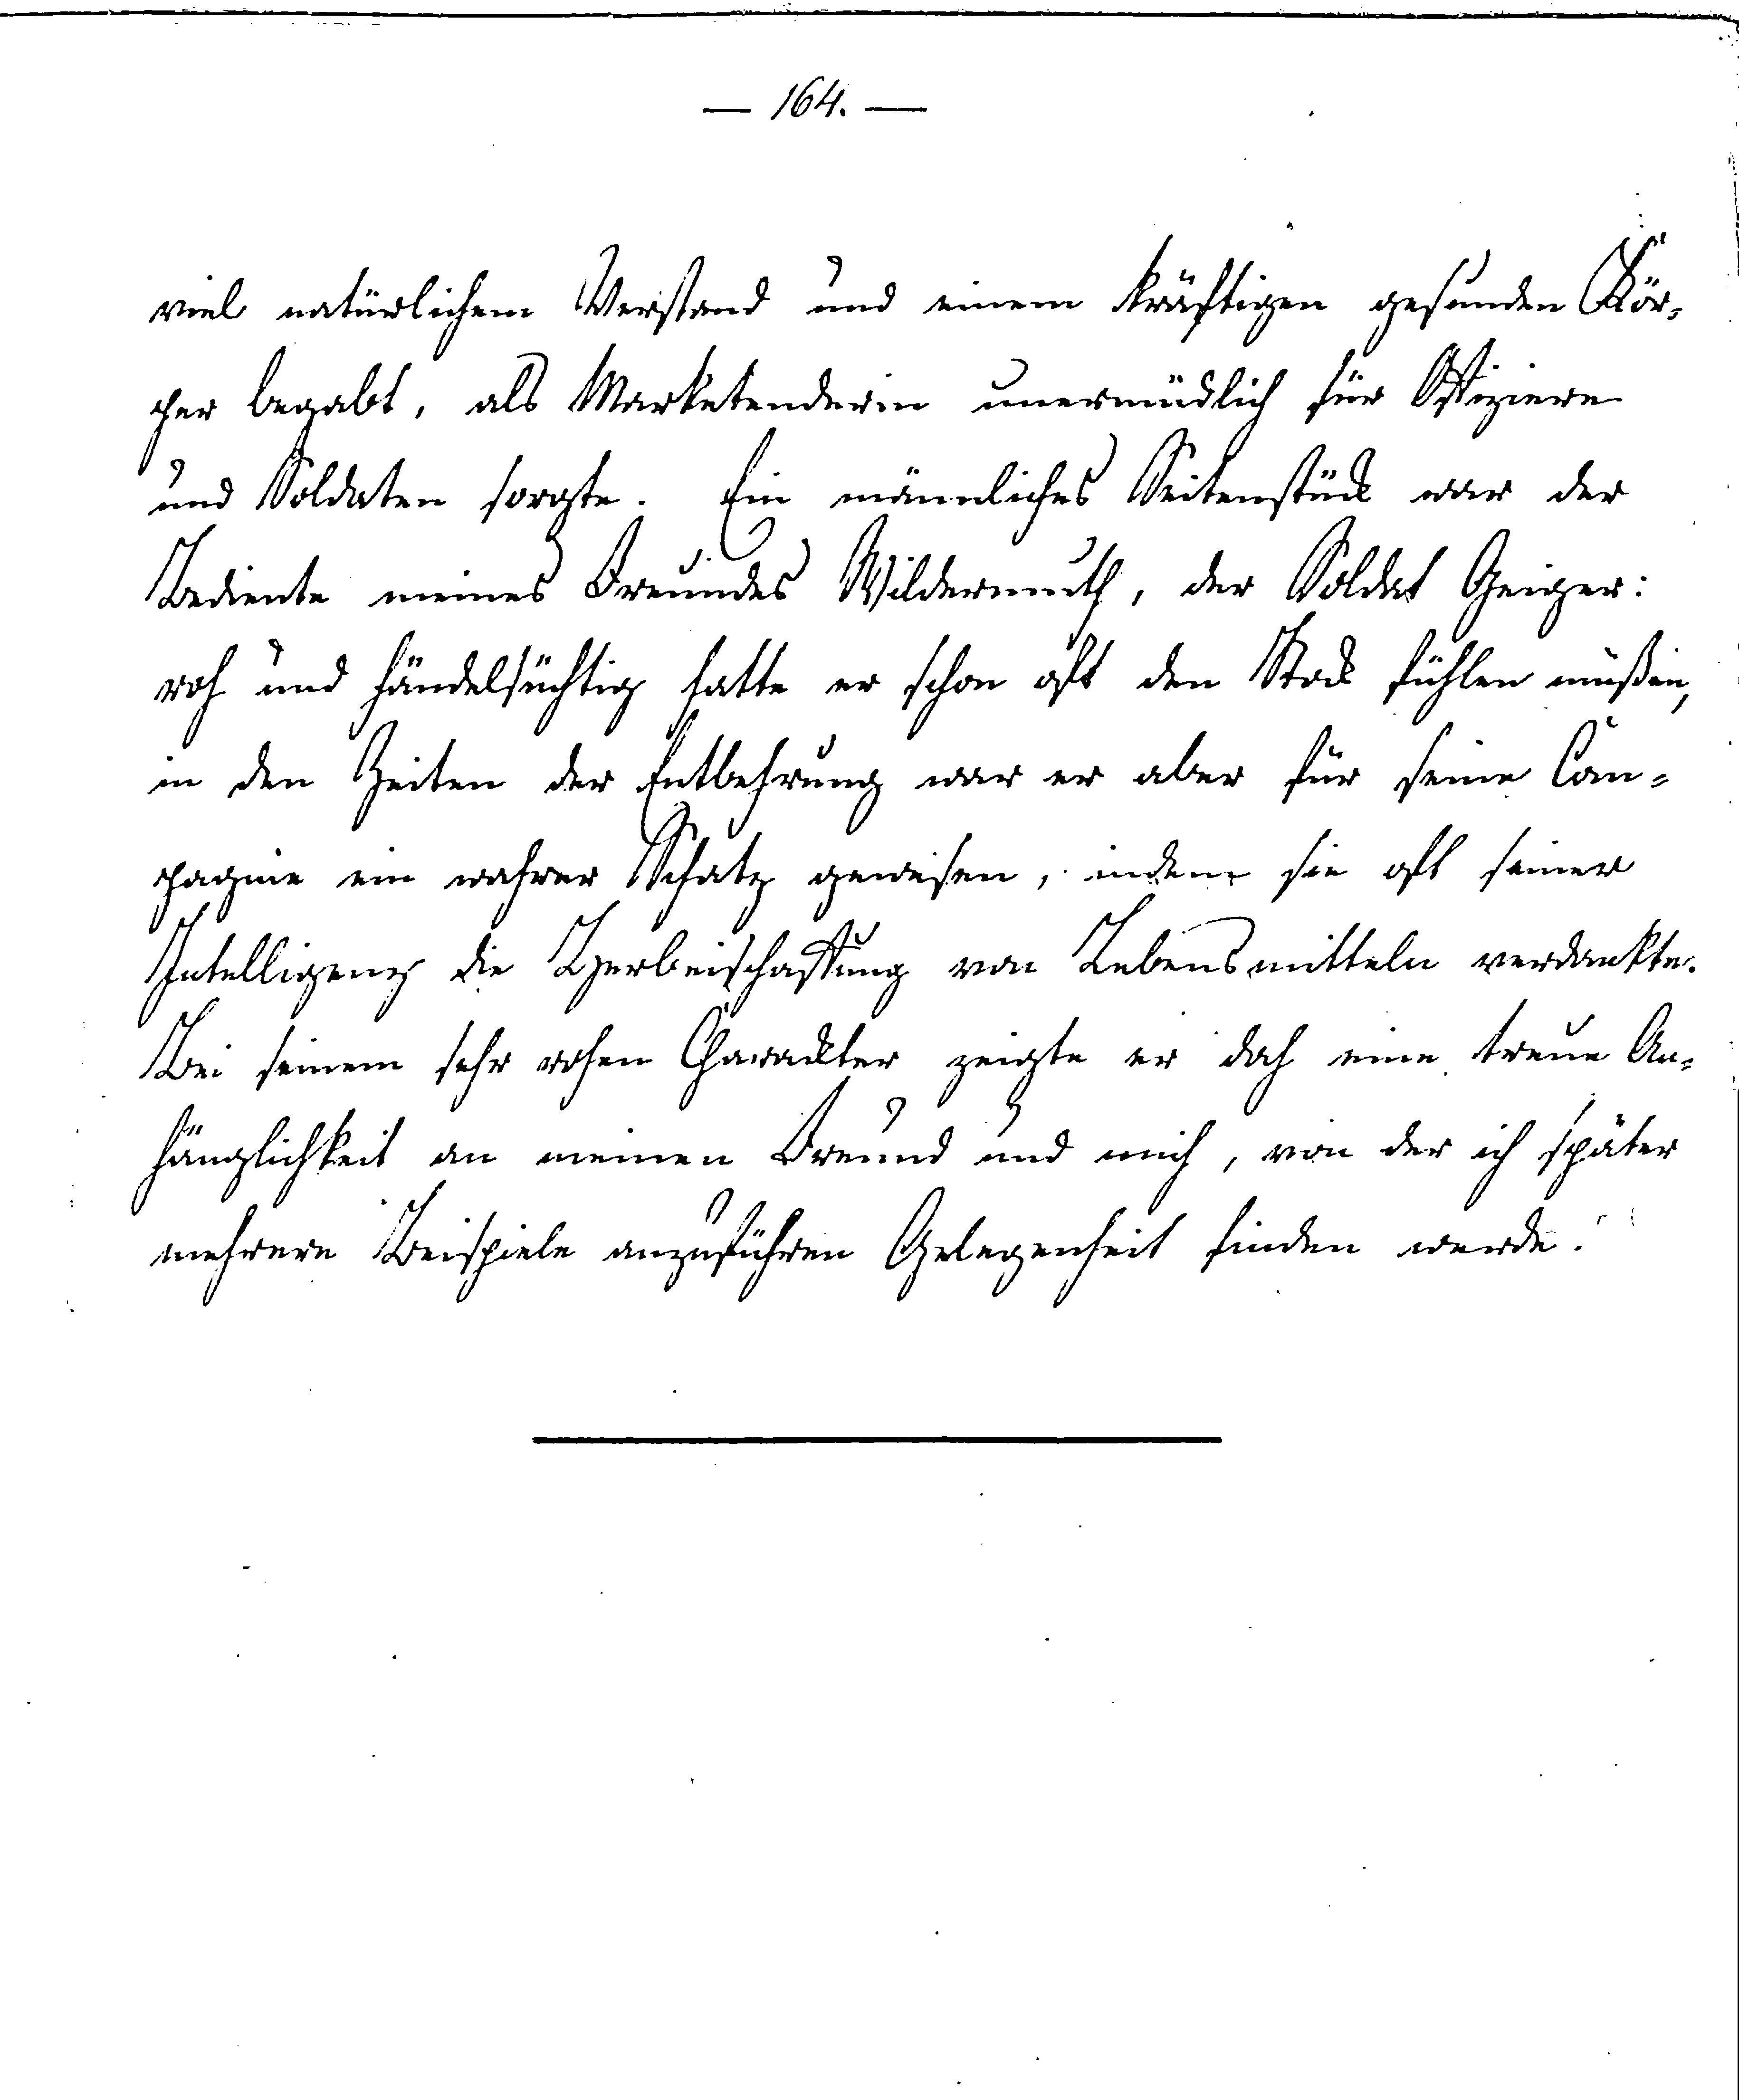 — 164. —
viel natürlichem Verstand und einem kräftigen gesunden Kör-
per begabt, als Marketenderin unermüdlich für Offiziere
und Soldaten sorgte. Ein männliches Seitenstück war der
Bediente meines Freundes Wildermuth, der Soldat Geiger:
roh und händelsüchtig hatte er schon oft den Stock fühlen müßen,
in den Zeiten der Entbehrung war er aber für seine Com-
pagnie ein wahrer Schatz gewesen, indem sie oft seiner
Intelligenz die Herbeischaffung von Lebensmitteln verdankte.
Bei seinem sehr rohen Charackter zeigte er doch eine treue An-
hänglichkeit an meinen Freund und mich, von der ich später
mehrere Beispiele anzuführen Gelegenheit finden werde.